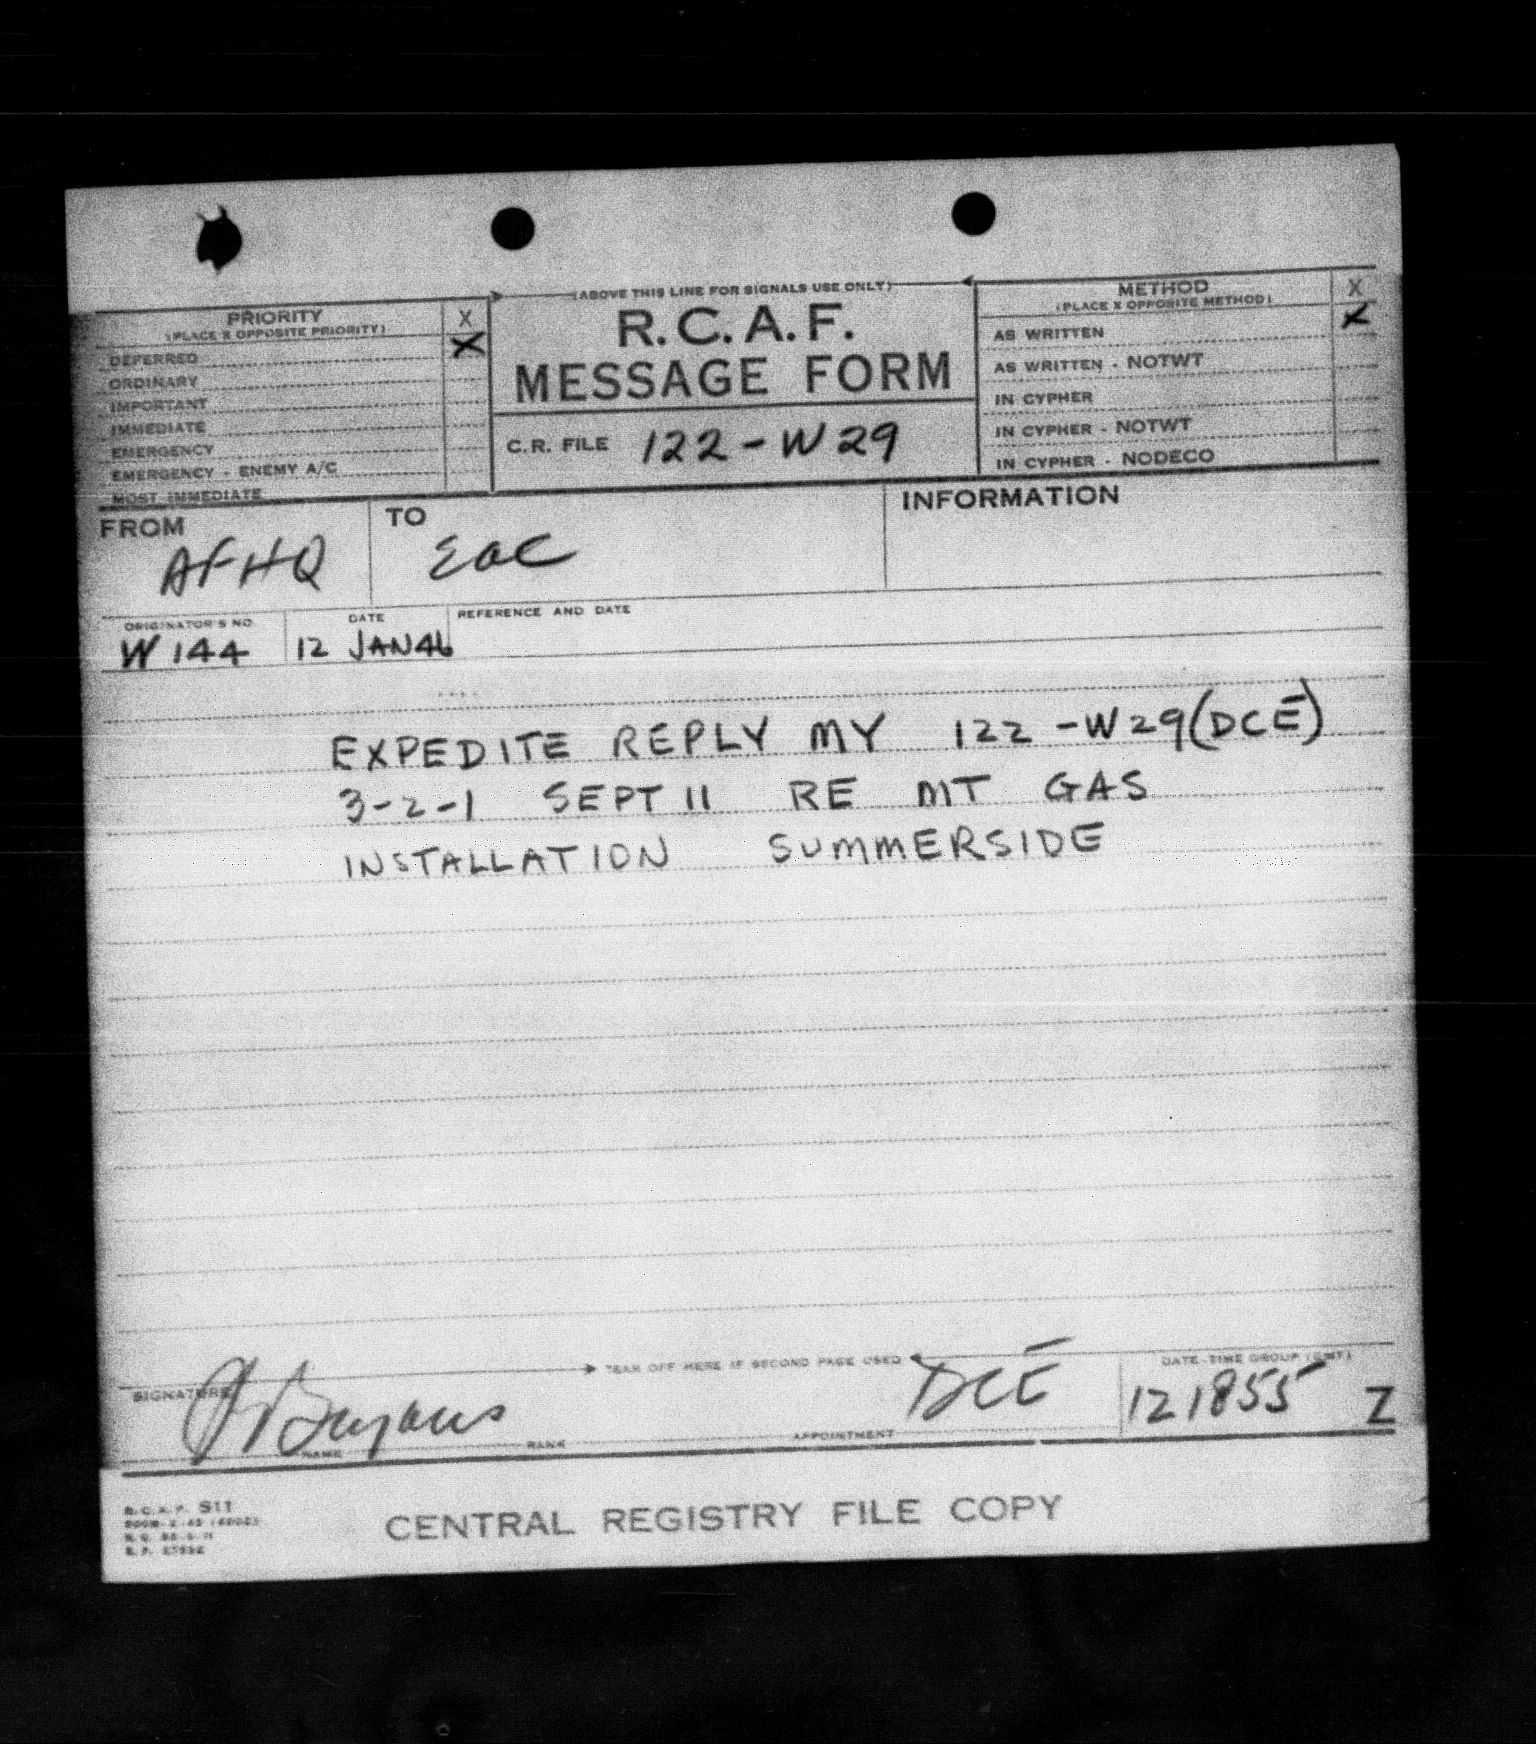 (ABOVE THIS LINE FOR SIGNALS USE ONLY)
PRIORITY X
(PLACE X OPPOSITE PRIORITY)
DEFERRED X
ORDINARY
IMPORTANT
IMMEDIATE
EMERGENCY
EMERGENCY - ENEMY A/C
MOST IMMEDIATE
R.C.A.F.
MESSAGE FORM
C.R. FILE 122-W29
METHOD X
(PLACE X OPPOSITE METHOD)
AS WRITTEN X
AS WRITTEN - NOTWT
IN CYPHER
IN CYPHER - NOTWT
IN CYPHER - NODECO
FROM
AFHQ
TO
EAC
INFORMATION
ORIGINATOR'S NO.
W144
DATE
12 JAN 46
REFERENCE AND DATE
EXPEDITE REPLY MY 122-W29(DCE)
3-2-1 SEPT 11 RE MT GAS
INSTALLATION SUMMERSIDE
TEAR OFF HERE IF SECOND PAGE USED
SIGNATURE
NAME
RANK
DCE
APPOINTMENT
DATE-TIME GROUP (GMT)
121855 Z
R.C.A.F. S11
CENTRAL REGISTRY FILE COPY